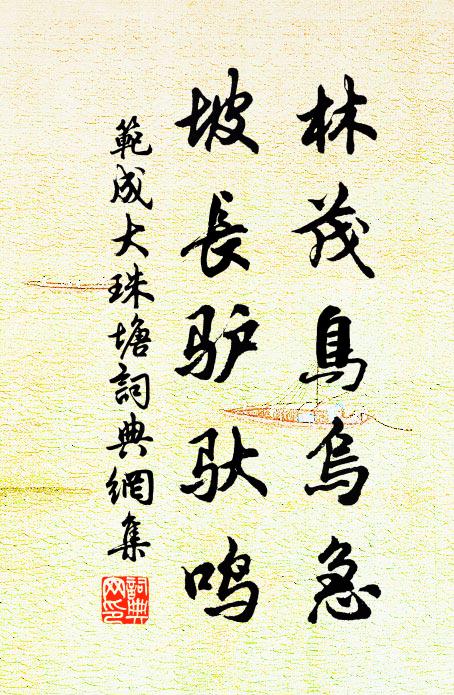 林茂鳥烏急
坡長驴驮鸣
範成大珠塘詞典網集
詞典
网印